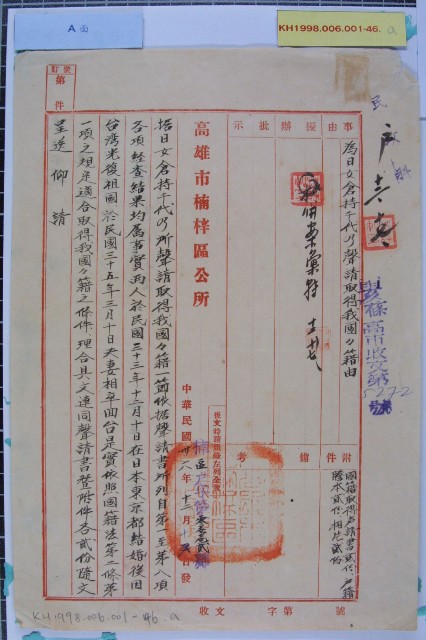 A面
KH1998.006.001-46.a
事由
為日女倉持千代乃聲請取得我國々籍由
擬辦
批示
附件
國籍取得聲請書貳份戶籍
謄本貳份相片貳份
備考
高雄市楠梓區公所
中華民國卅八年十二月
日發
據日女倉持千代乃所聲請取得我國々籍一節依據聲請書所列自第一至第八項
各項經查結果均屬事實兩人於民國三十三年十二月十日在日本東京都結婚後因
台灣光復祖國於民國三十五年三月十日夫妻相率回台是實依照國籍法第二條第
一項之規定適合取得我國々籍之條件理合具文連同聲請書暨附件各貳份隨文
呈送仰請
收文
字第
號
第
件
KH1998.006.001-46.a